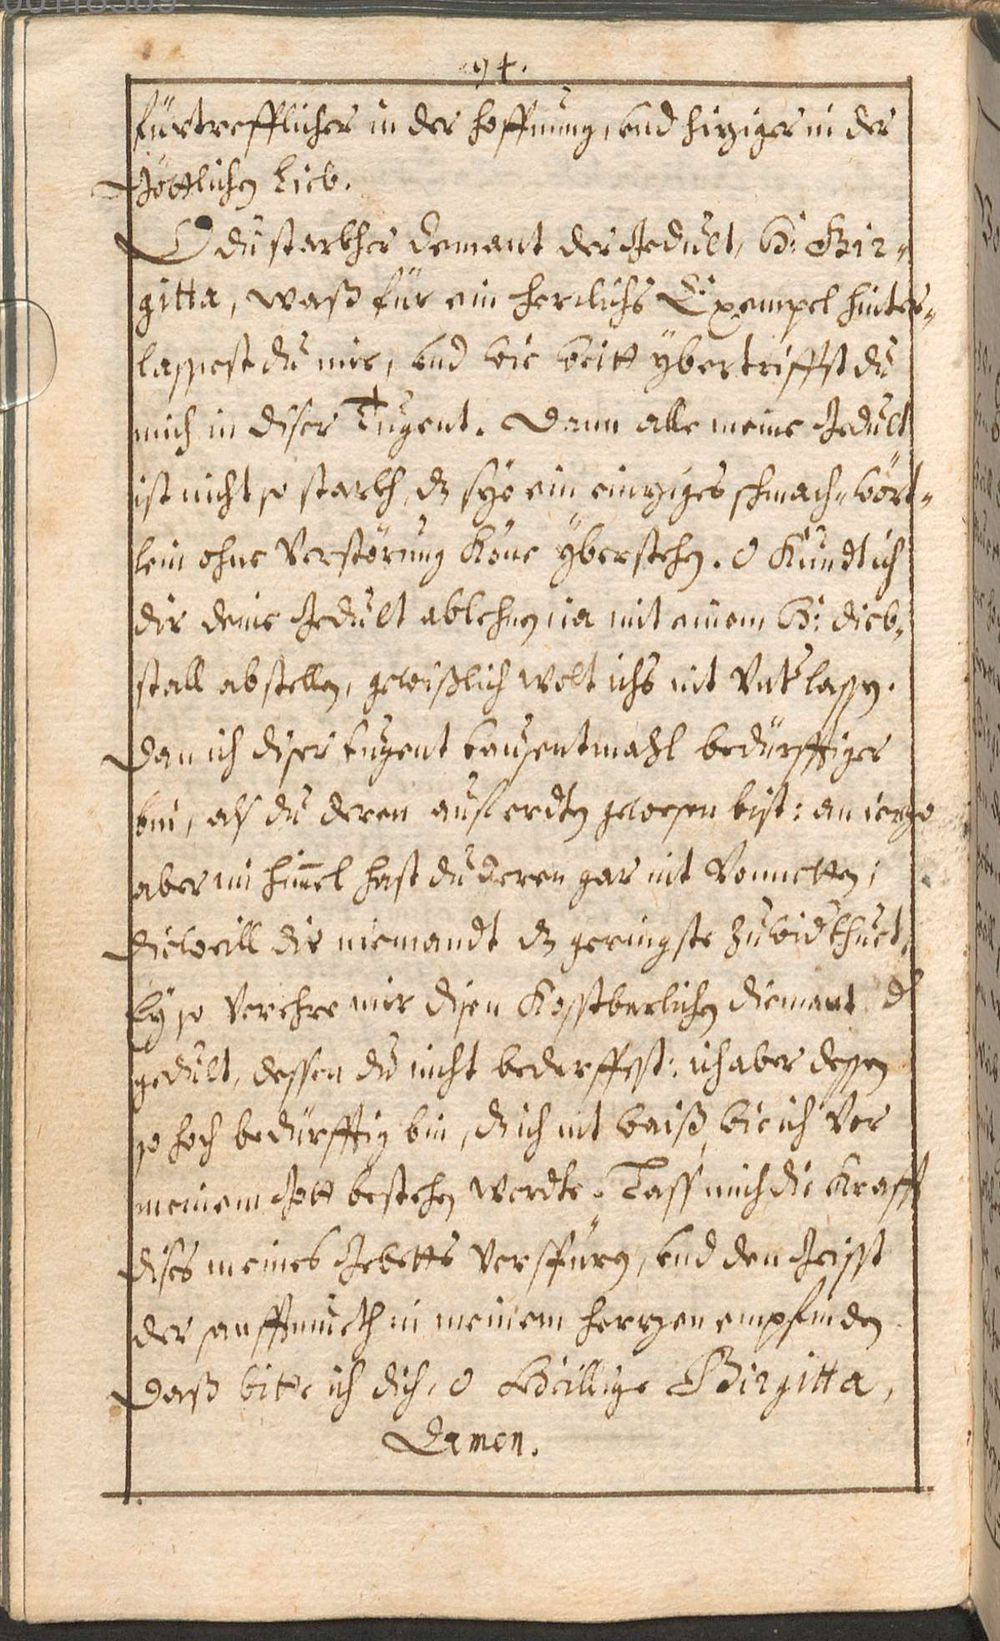 00118389
94.
fürtrefflicher in der hoffnung, vnd hiziger in der
Göttlichen Lieb.
O du starkher Demant der Gedult, H: Bir-
gitta, waß für ein herrlichs Exempel hinder-
lassest du mir, vnd wie weitt ÿbertriffst du
mich in diser Tugent. Dann alle meine Gedult
ist nicht so starkh, dz sÿe ein einziges schmach-wört-
lein ohne Verstörung köne ÿberstehen. O kundt ich
dir deine Gedult ablehnen, ia mit einem H: dieb-
stall abstellen, gewißlich wolt ichs nit Vnterlassen.
Dan ich diser tugent tausentmahl bedürfftiger
bin, als du deren auf erdten gewesen bist: an iezo
aber im him̅el hast du deren gar nit Vonnetten;
dieweill dir niemandt dz geringste zuwid thuet,
Eÿ so Verehre mir disen Kosstbarlichen diemant d
gedult, dessen du nicht bederffest: ich aber dessen
so hoch bedürfftig bin, dz ich nit waiß wie ich Vor
meinem Gott bestehen werdte. Lass mich die krafft
dises meines Gebetts Verspüren, vnd den Geisst
der sanfftmueth in meinem herzen empfinden
Daß bitte ich dich, O Heillige Birgitta,
Amen.